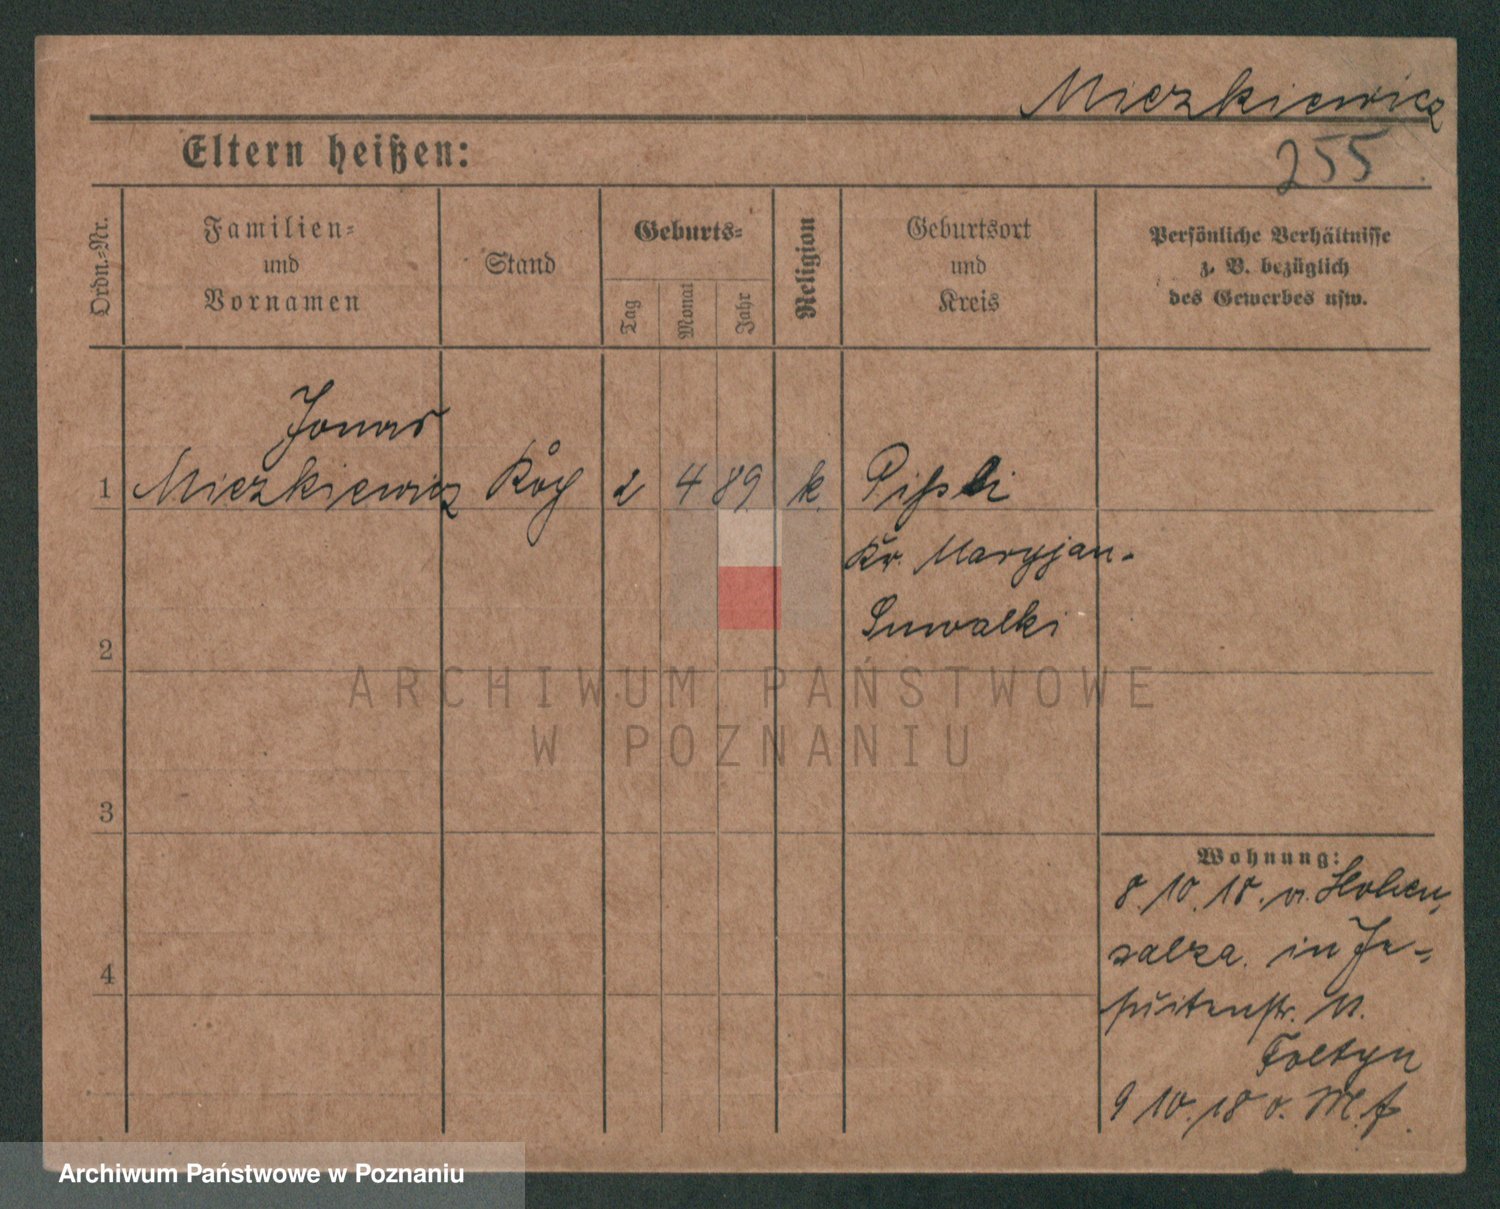 Miezkiewicz
Eltern heißen:
255
Ordn.-Nr.
Familien-
und
Vornamen
Stand
Geburts-
Tag
Monat
Jahr
Religion
Geburtsort
und
Kreis
Persönliche Verhältnisse
z. B. bezüglich
des Gewerbes usw.
Jonas
1 Miezkiewicz 2 4 89. k.
Kr. Maryjan-
Suwalki
2
3
4
Wohnung:
8 10. 18. v. Hohen
salza. in Je-
suitenstr. 11.
9 10. 18 v.
ARCHIWUM PAŃSTWOWE
W POZNANIU
Archiwum Państwowe w Poznaniu